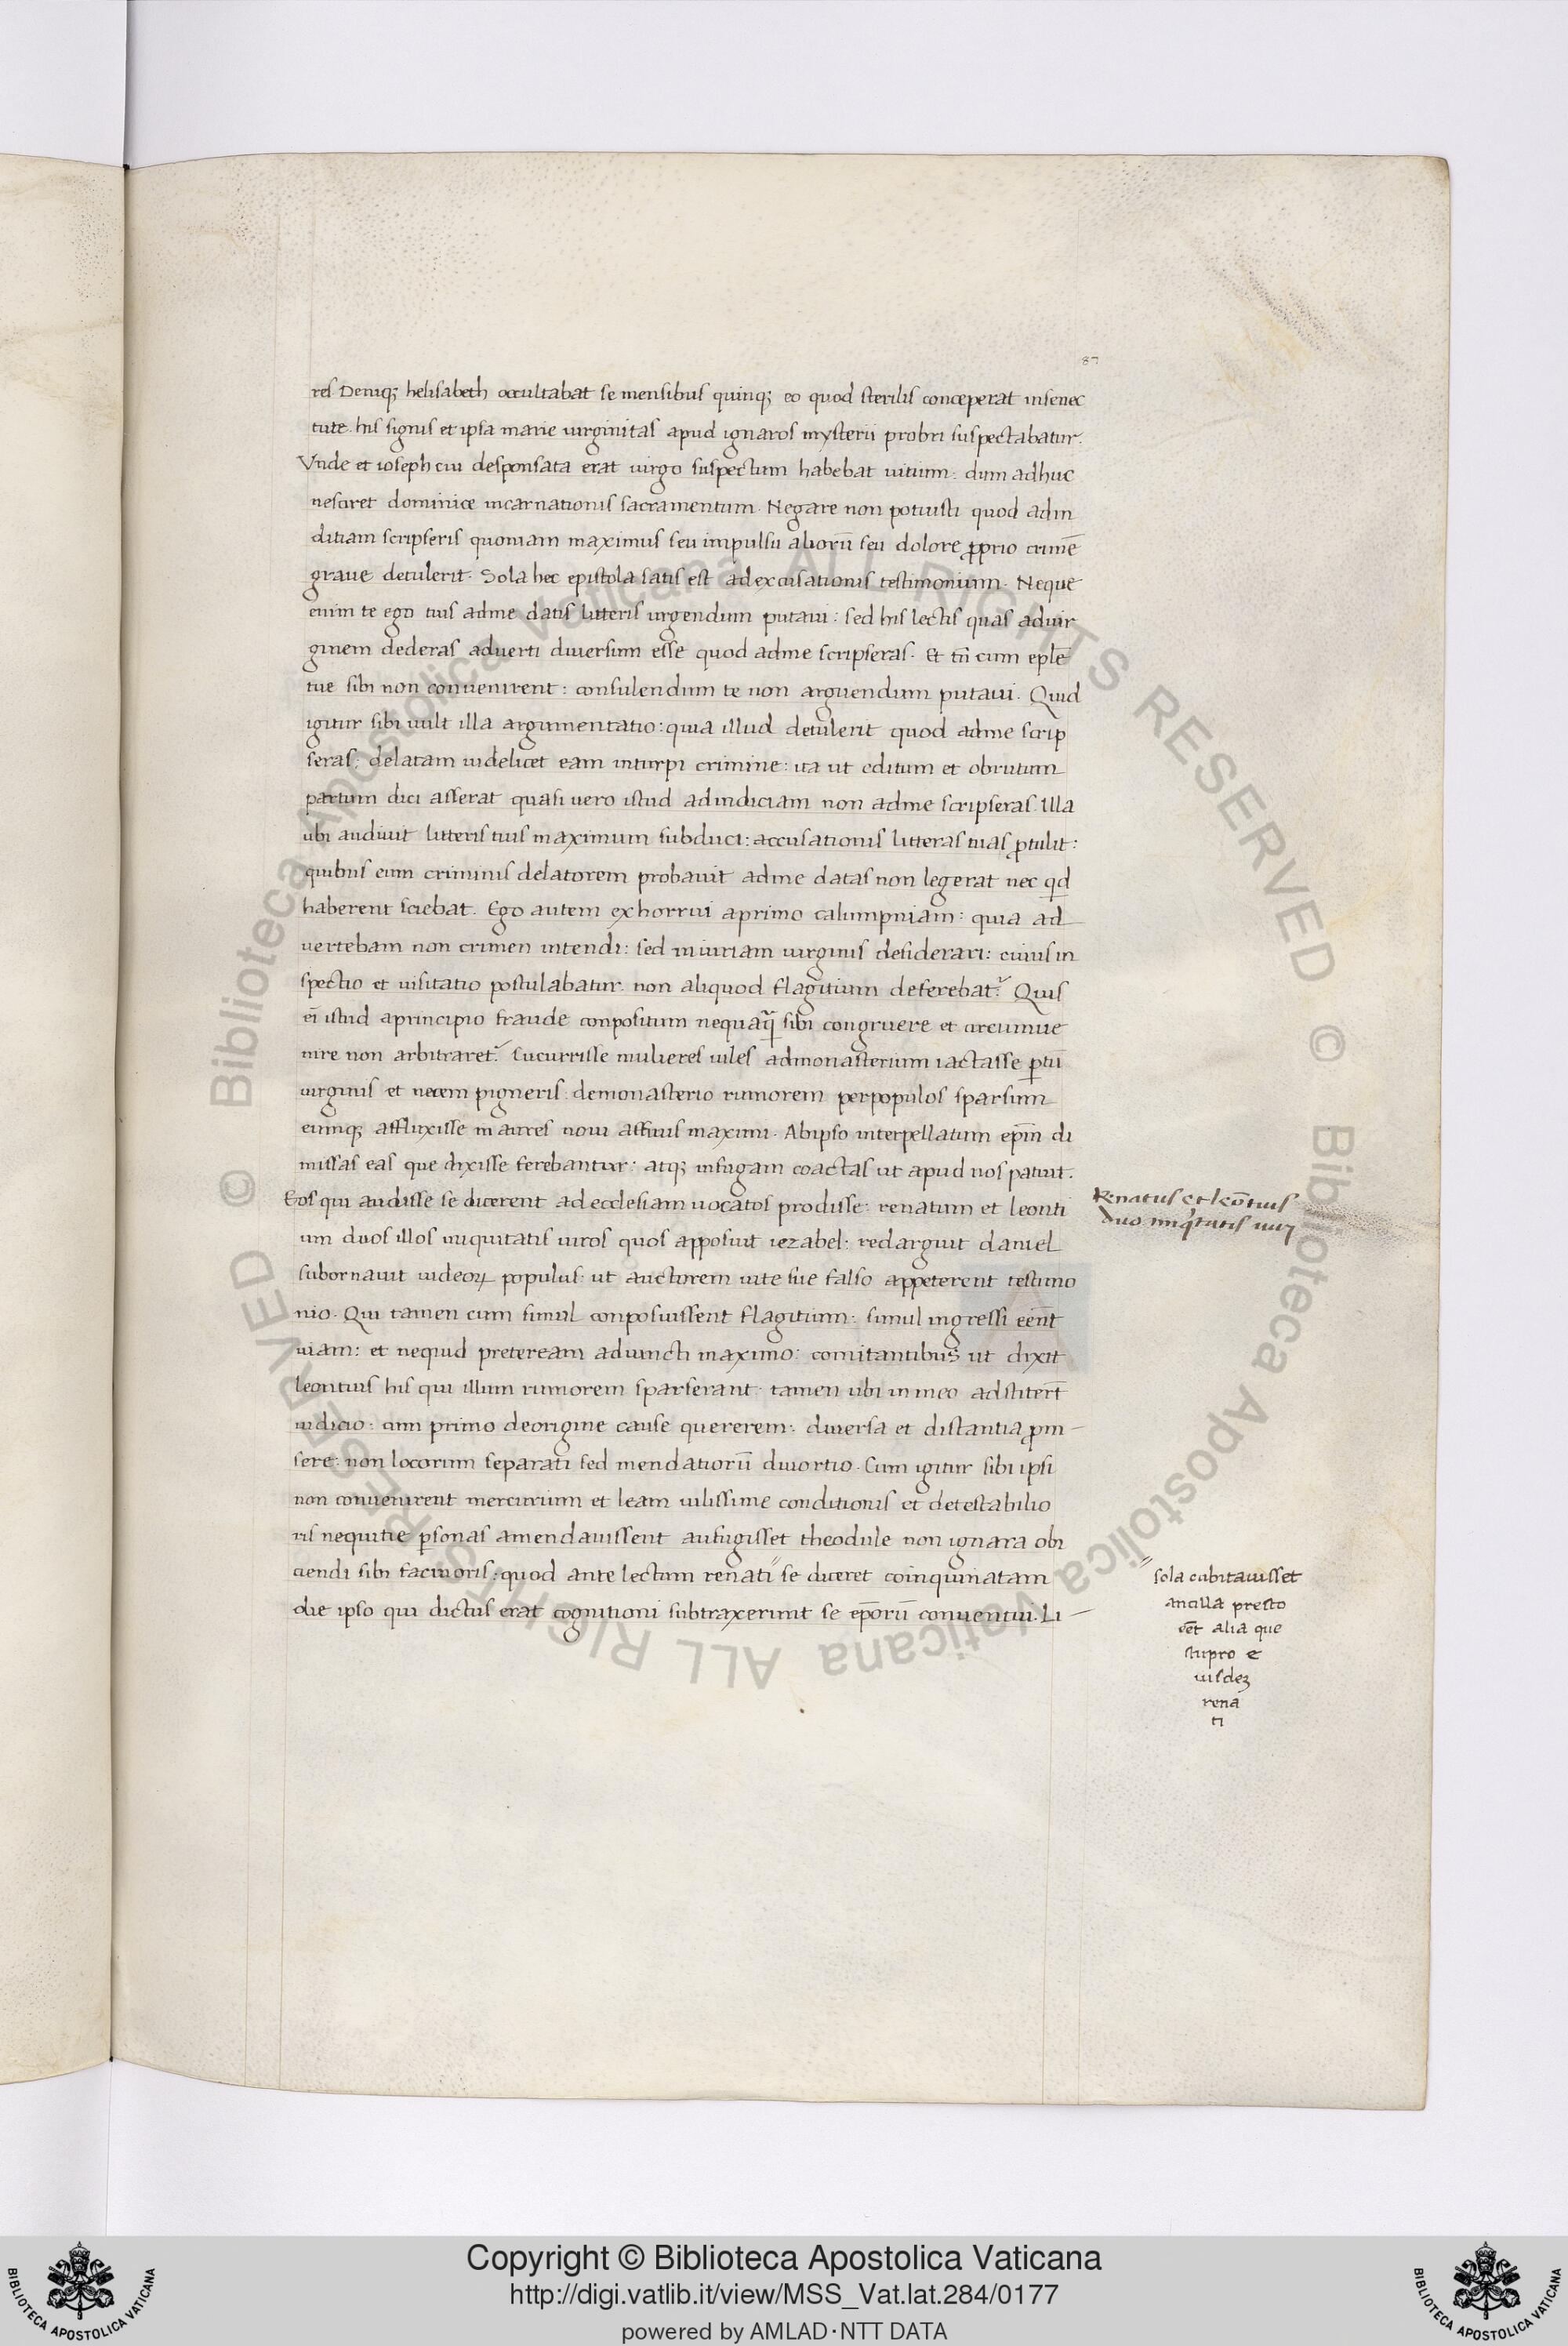 87
res Deniq; helisabeth occultabat se mensibus quinq; eo quod sterilis conceperat insenec
tute. his signis et ipsa marie uirginitas apud ignaros mysterii probri suspectabatur.
Vnde et ioseph cui desponsata erat uirgo suspectum habebat uitium: dum adhuc
nesciret dominice incarnationis sacramentum. Negare non potuisti quod adin
ditiam scripseris quoniam maximus seu impulsu aliorū seu dolore ꝓprio crimē
graue detulerit. Sola hec epistola satis est adexcusationis testimonium. Neque
enim te ego tuis adme datis litteris urgendum putaui: sed his lectis quas aduir
ginem dederas aduerti diuersum esse quod adme scripseras. Et tn̄ cum eplē
tue sibi non conuenirent: consulendum te non arguendum putaui. Quid
igitur sibi uult illa argumentatio: quia illud detulerit quod adme scrip
seras; delatam uidelicet eam inturpi crimine: ita ut editum et obrutum
partum dici asserat quasi uero istud adindiciam non adme scripseras. Illa
ubi audiuit litteris tuis maximum subduci: accusationis litteras tuas ꝓtulit:
quibus eum criminis delatorem probauit adme datas non legerat nec qd
haberent sciebat. Ego autem exhorrui aprimo calumpniam: quia ad
uertebam non crimen intendi: sed iniuriam uirginis desiderari: cuius in
spectio et uisitatio postulabatur. non aliquod flagitium deferebat. Quis
ei istud aprincipio fraude conpositum nequaq̄ sibi congruere et circumue
nire non arbitraret. Cucurrisse mulieres uiles admonasterium iactasse ꝑtū
uirginis et necem pigneris. demonasterio rumorem perpopulos sparsum
eumq; affluxisse inaures noui affinis maximi. Abipso interpellatum ep̄m di
missas eas que dixisse ferebantur: atq; infugam coactas ut apud nos patuit.
Eos qui audisse se dicerent adecclesiam uocatos prodisse: renatum et leonti
um duos illos iniquitatis uiros quos apposuit iezabel: redarguit daniel
subornauit iudeoꝝ populus: ut auctorem uite sue falso appeterent testimo
nio. Qui tamen cum simul conposuissent flagitium: simul ingressi eēnt
uiam: et nequid preteream adiuncti maximo: comitantibus ut dixit
leontius his qui illum rumorem sparserant. tamen ubi inmeo adstiterīt
iudicio: cum primo deorigine cause quererem: diuersa et distantia ꝓm
sere: non locorum separati sed mendatiorū diuortio. Cum igitur sibi ipsi
non conuenirent mercurium et leam uilissime conditionis et detestabilio
ris nequitie ꝑsonas amendauissent aufugisset theodule non ignara obi
ciendi sibi facinoris: quod ante lectum renati se diceret coinquinatam
die ipso qui dictus erat cognitioni subtraxerunt se ep̄orū conuentui. Li
Renatus et leōtius
duo iniq̇tatis uiri
sola cubitauisset
ancilla presto
eēt alia que
stupro e
iusdeꝫ
rena
ti
© Biblioteca Apostolica Vaticana ALL RIGHTS RESERVED © Biblioteca Apostolica Vaticana ALL RIGHTS RESERVED
Copyright © Biblioteca Apostolica Vaticana
http://digi.vatlib.it/view/MSS_Vat.lat.284/0177
powered by AMLAD·NTT DATA
BIBLIOTECA APOSTOLICA VATICANA
BIBLIOTECA APOSTOLICA VATICANA